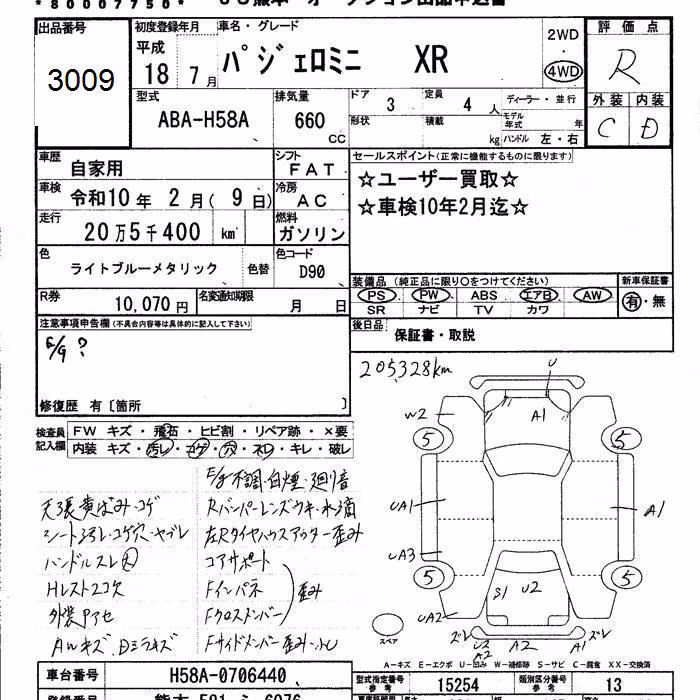 *80007750*
出品番号
3009
初度登録年月
平成
18年 7月
車名・グレード
パジェロミニ XR
2WD
・
4WD
評価点
R
外装 内装
C D
型式
ABA-H58A
排気量
660 CC
ドア 3
定員 4 人
ディーラー・並行
形状
積載 kg
モデル年式 年
ハンドル 左・右
車歴 自家用
シフト FAT
車検 令和10年 2月( 9日)
冷房 AC
走行 20万5千400 km
燃料 ガソリン
色 ライトブルーメタリック 色替
色コード D90
R券 10,070円
名変通知期限 月 日
セールスポイント(正常に機能するものに限ります)
☆ユーザー買取☆
☆車検10年2月迄☆
装備品 (純正品に限り○をつけてください)
PS PW ABS エアB AW
SR ナビ TV カワ
新車保証書
有・無
後日品 保証書・取説
注意事項申告欄(不具合内容等は具体的に記入して下さい)
E/g ?
修復歴 有〔箇所 〕
検査員記入欄
FW キズ・飛石・ヒビ割・リペア跡・×要
内装 キズ・汚レ・コゲ・穴・スレ・キレ・破レ
天張黄ばみ・コゲ
シート汚レ・コゲ穴・ヤブレ
ハンドルスレ大
Hレスト2コ欠
外装Pアセ
AWキズ、Dミラキズ
E/g不調・白煙・廻り音
Rバンパーレンズウキ・水滴
左Rタイヤハウスアウター歪み
コアサポート
Fインパネ
Fクロスメンバー
歪み
Fサイドメンバー歪み・小U
205,328km
U
A1
W2
5
5
UA1
A1
UA3
5
5
S1 U2
UA2
スペア
ズレ
U2
A2
A2
A1
ズレ
A-キズ E-エクボ U-凹み W-補修跡 S-サビ C-腐食 XX-交換済
車台番号 H58A-0706440
型式指定番号 参考 15254
類別区分番号 参考 13